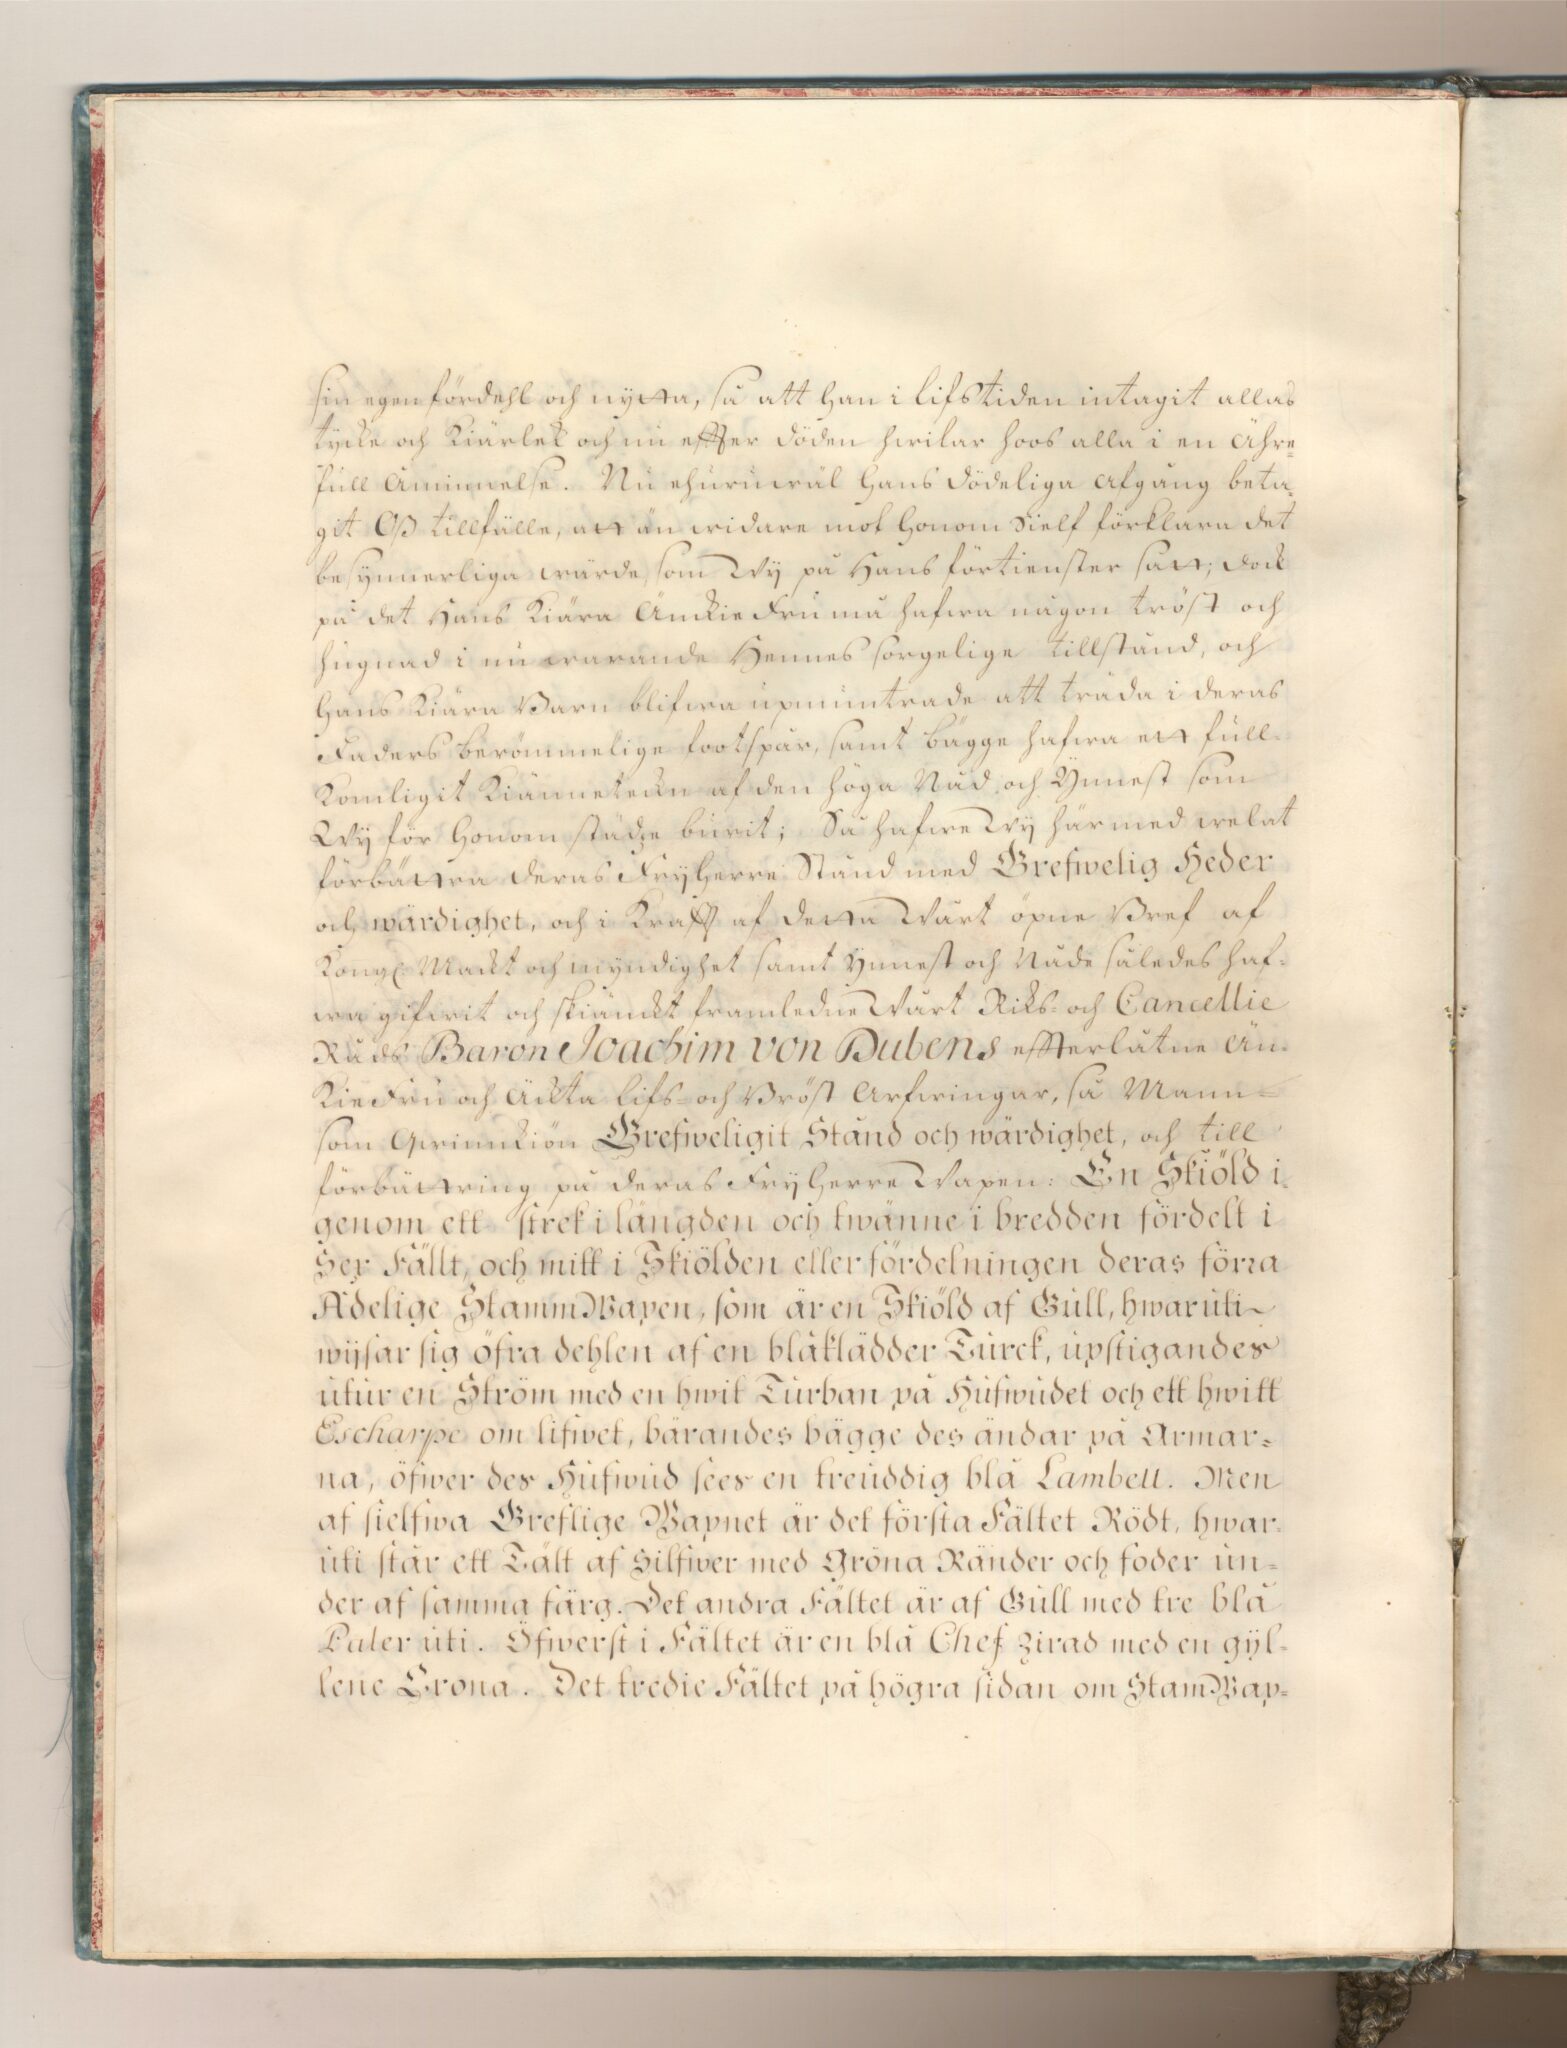 sin egen fördehl och nytta, så att Han i lifstiden intagit allas
tycke och Kiärlek och nu effter döden hwilar hoos alla i en Ähre-
full åminnelse. Nu ehuruwäl Hans dödeliga afgång beta-
git Oß tillfälle, att än widare mot Honom Sielf förklara det
besynnerliga wärde, som Wy på Hans förtienster satt; dock
på det Hans Kiära Änkie Fru må hafwa någon tröst och
hugnad i nuwarande Hennes sorgelige tillstånd, och
Hans Kiära Barn blifwa upmuntrade att träda i deras
Faders berömmelige footspår, samt bägge hafwa ett full-
Komligit Kiännetekn af den höga Nåd och Ynnest som
Wy för Honom städze burit; Så hafwe Wy härmed welat
förbättra deras FryHerre Stånd med Grefwelig Heder
och wärdighet, och i Krafft af detta Wårt öpne Bref af
Kongl. Mackt och myndighet samt Ynnest och Nåde således haf-
wa gifwit och skiänckt framledne Wårt Riks- och Cancellie
Råds Baron Joachim von Dubens effterlåtne Än-
Kie Fru och Äckta lifs- och Bröst Arfwingar, så Mann-
som Qwinnkiön Grefweligit Stånd och wärdighet, och till
förbättring på deras FryHerre Wapen: En Skiöld i-
genom ett strek i längden och twänne i bredden fördelt i
Sex Fällt, och mitt i Skiölden eller fördelningen deras förra
Adelige StammWapen, som är en Skiöld af Gull, hwaruti
wijsar sig öfra dehlen af en blåklädder Turck, upstigandes
utur en Ström med en hwit Turban på Hufwudet och ett hwitt
Escharpe om lifwet, bärandes bägge des ändar på Armar-
na, öfwer des Hufwud sees en treuddig blå Lambell. Men
af sielfwa Greflige Wapnet är det första Fältet Rödt, hwar-
uti står ett Tält af Silfwer med Gröna Ränder och foder un-
der af samma färg. Det andra Fältet är af Gull med tre blå
Paler uti. Öfwerst i Fältet är en blå Chef zirad med en gyl-
lene Crona. Det tredie Fältet på högra sidan om StamWap-